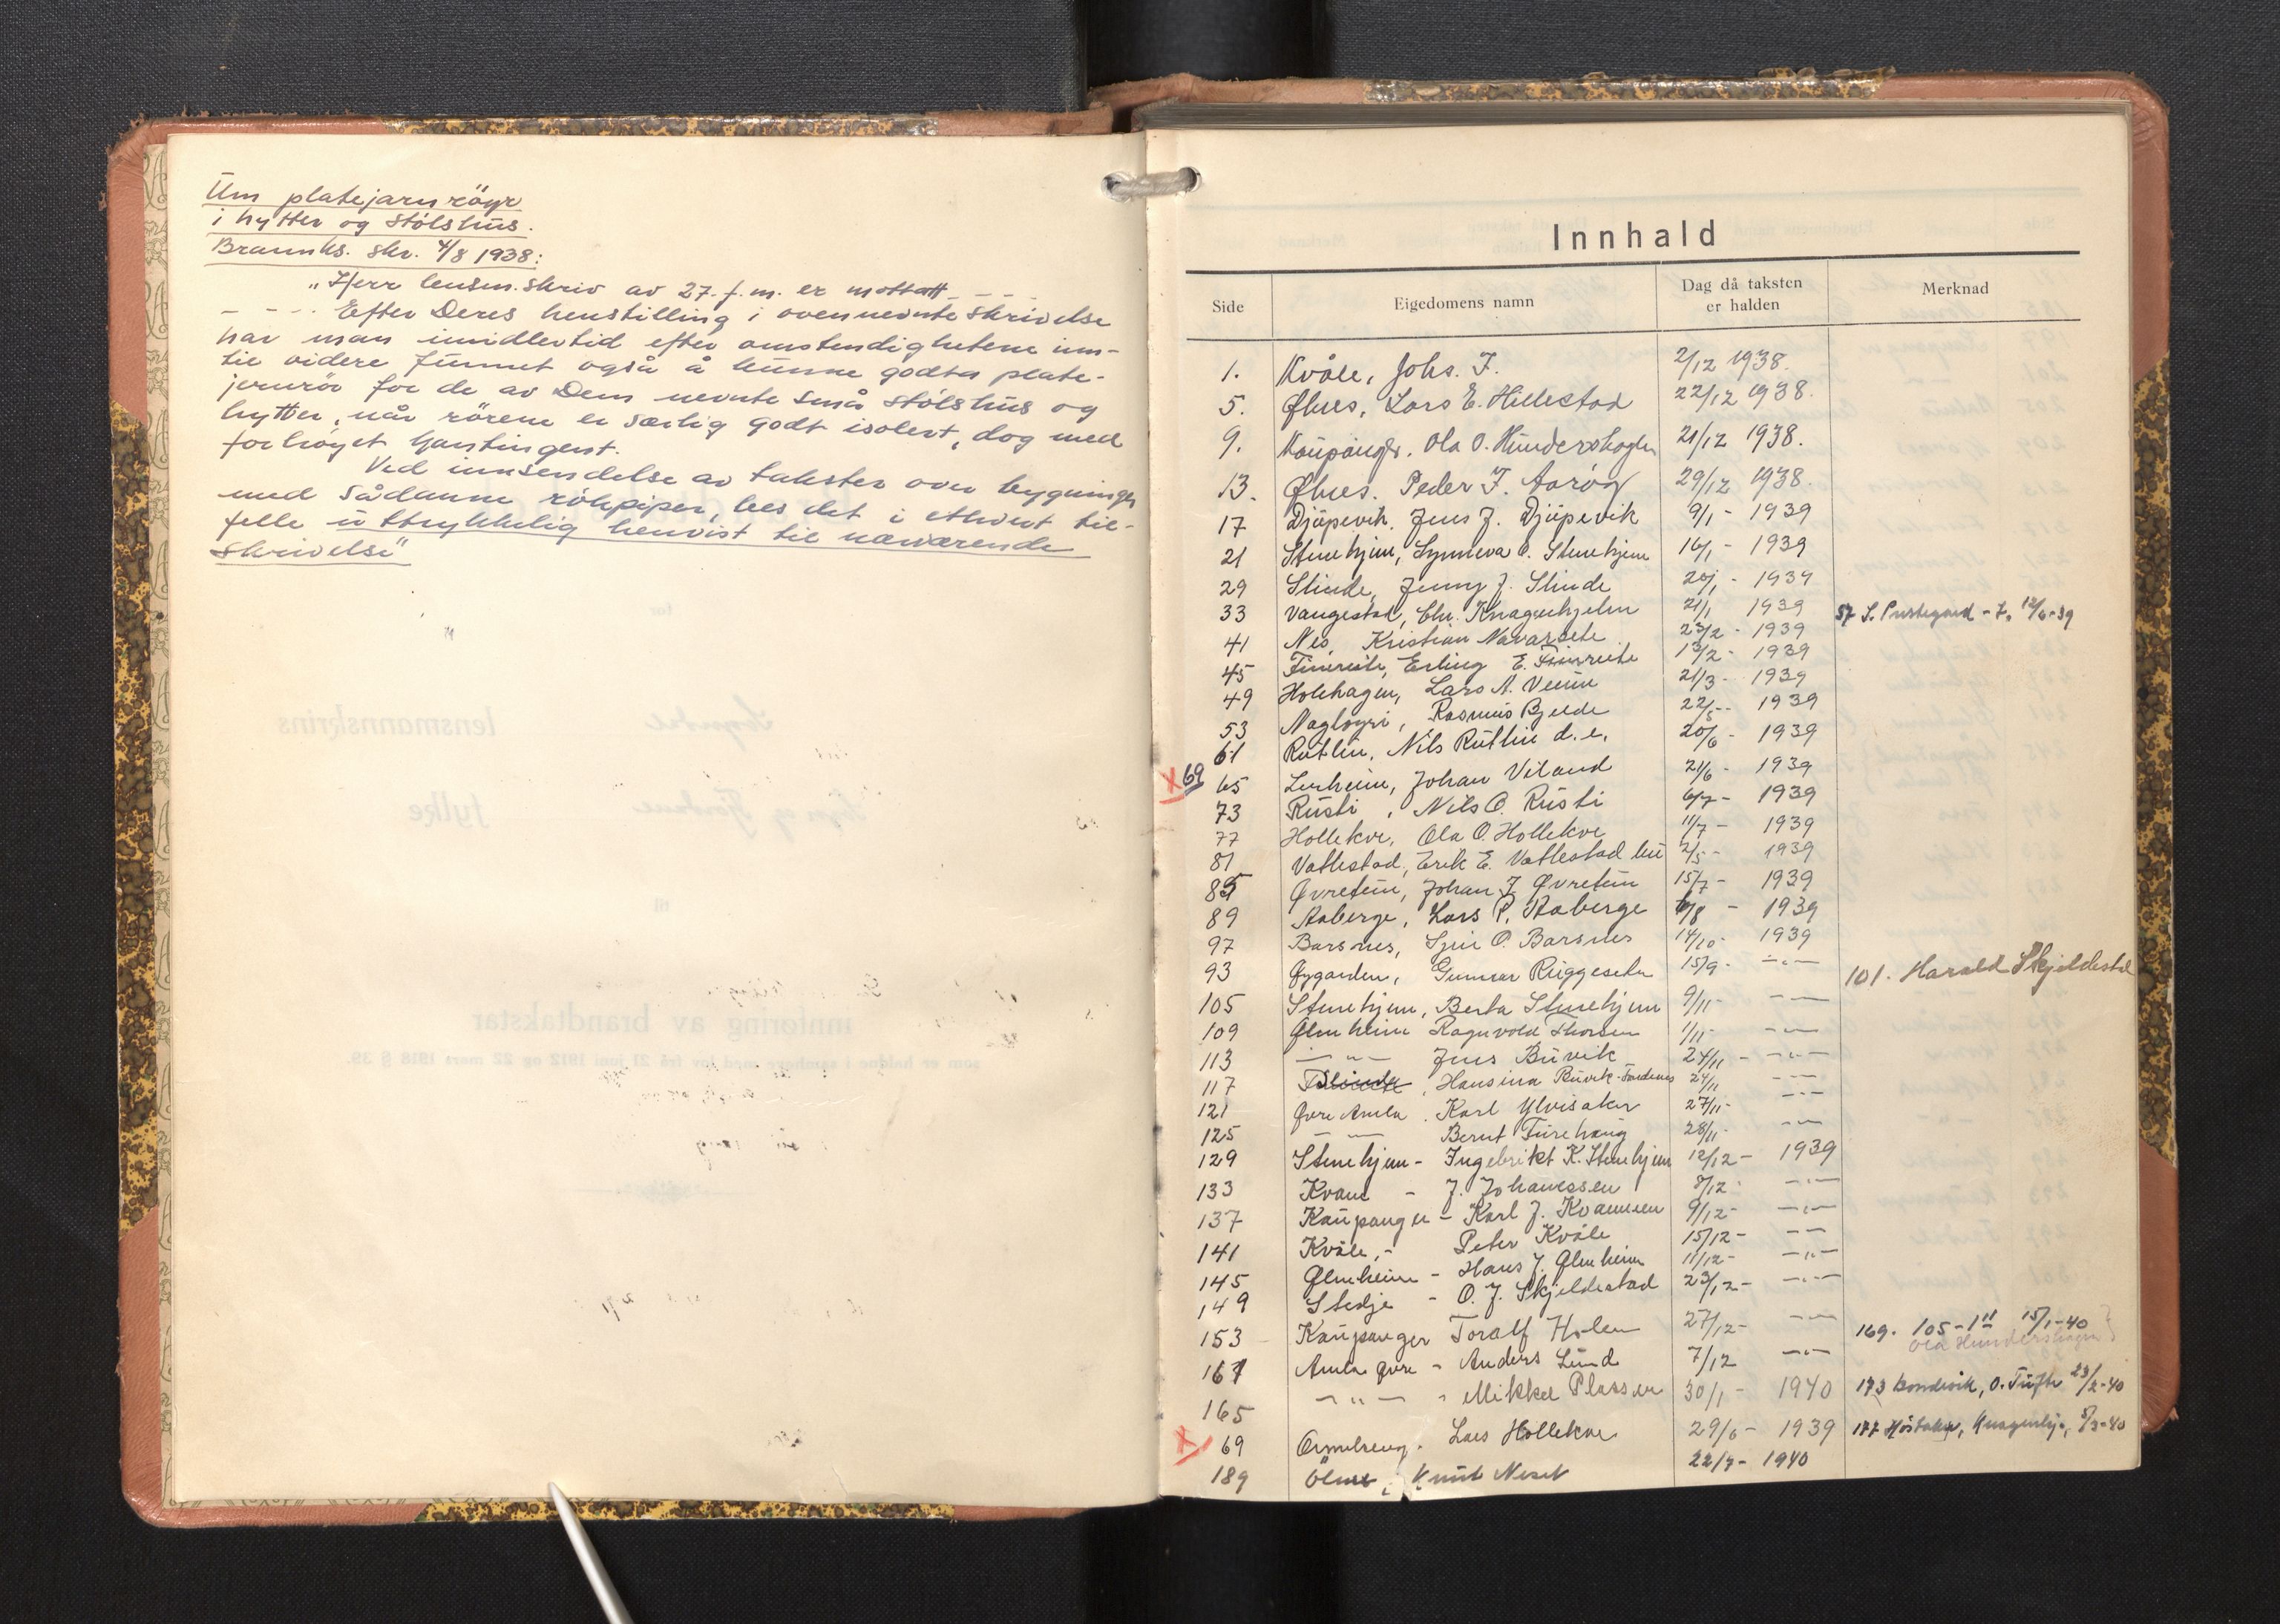 Um platejarnröyr
i hytter og stölshus.
Brannks. skr. 4/8 1938:
"Herr lensm. skriv av 27. f.m. er mottatt - - - -
- - - Efter Deres henstilling i ovennevnte skrivelse
har man imidlertid efter omstendighetene inn-
til videre funnet også å kunne godta plate-
jernrör for de av Dem nevnte små stölshus og
hytter, når rörene er særlig godt isolert, dog med
forhöyet kontingent.
Ved innsendelse av takster over bygninger
med sådanne rökpiper, bes det i ethvert til-
felle uttrykkelig henvist til nærværende
skrivelse"
Innhald
Side Eigedomens namn Dag då taksten er halden Merknad
1. Kvåle, Johs. J. 2/12 1938.
5. Ølnes, Lars E. Hillestad 22/12 1938.
9. Kaupanger, Ola O. Hundershagen 21/12 1938.
13. Ølnes. Peder J. Aarøy 29/12 1938.
17 Djupevik. Jens J. Djupevik 9/1 - 1939
21 Stenehjem, Synneva O. Stenehjem 16/1 - 1939
29 Slinde, Jenny J. Slinde 20/1 - 1939
33 Vangestad, Chr. Knagenhjelm 21/1 1939 57 S. Prestegard - 7. 12/6-39
41 Nes, Kristian Navarsete 23/2 - 1939
45 Fimreite, Erling E. Fimreite 13/2 - 1939
49 Holehagen, Lars A. Venin 21/3 - 1939
53 Nagløyri, Rasmus Bjelde 22/5 - 1939
61 Rutlin, Nils Rutlin d.e. 20/6 - 1939
X 69
65 Lerheim, Johan Viland 21/6 - 1939
73 Rusti, Nils O. Rusti 6/7 - 1939
77 Hollekve, Ola O. Hollekve 11/7 - 1939
81 Vatlestad, Erik E. Vatlestad bu 2/5 - 1939
85 Øvretun, Johan J. Øvretun 15/7 - 1939
89 Aaberge, Lars P. Aaberge 6/8 - 1939
97 Barsnes, Sjur O. Barsnes 14/10 - 1939
93 Øygarden, Gunnar Ruggeseter 15/9 - -"- 101. Harald Skjeldestad
105 Stenehjem, Berta Stenehjem 9/11 - -"-
109 Ølmheim Ragnvald Thorsen 1/11 - -"-
113 -"- Jens Buvik 24/11 - -"-
117 Slinde, Hansina Buvik - Fardnes 24/11 -"-
121 Øvre Amla. Karl Ylvisaker 27/11 - -"-
125 -"- Bernt Furehaug 28/11 - -"-
129 Stenehjem - Ingebrikt K. Stenehjem 12/12 - 1939
133 Kvam - J. Johanessen 8/12 - -"-
137 Kaupanger - Karl J. Kvammen 9/12 - -"-
141 Kvåle, - Peter Kvåle 15/12 - -"-
145 Ølmheim - Hans J. Ølmheim 11/12 - -"-
149 Stedje - O. J. Skjeldestad 23/12 - -"-
153 Kaupanger Toralf Holen 27/12 - -"- 169. 105 - 1 11 15/1-40
Ola Hundershagen
161 Amla øvre - Anders Lund 7/12 -"-
165 -"- - Mikkel Plassen 30/1 - 1940 173 Bondevik, O. Tufte 23/2-40
X 69 Ormelreng. Lars Hollekve 29/6 - 1939 177 Høstaker, Knagenhj., 5/3-40
189 Ölnes, Knut Neset 22/7 - 1940
lensmannskrins
Sogndal
fylke
Sogn og Fjordane
til
innføring av brandtakstar
som er haldne i samhøve med lov frå 21 juni 1912 og 22 mars 1918 § 39.